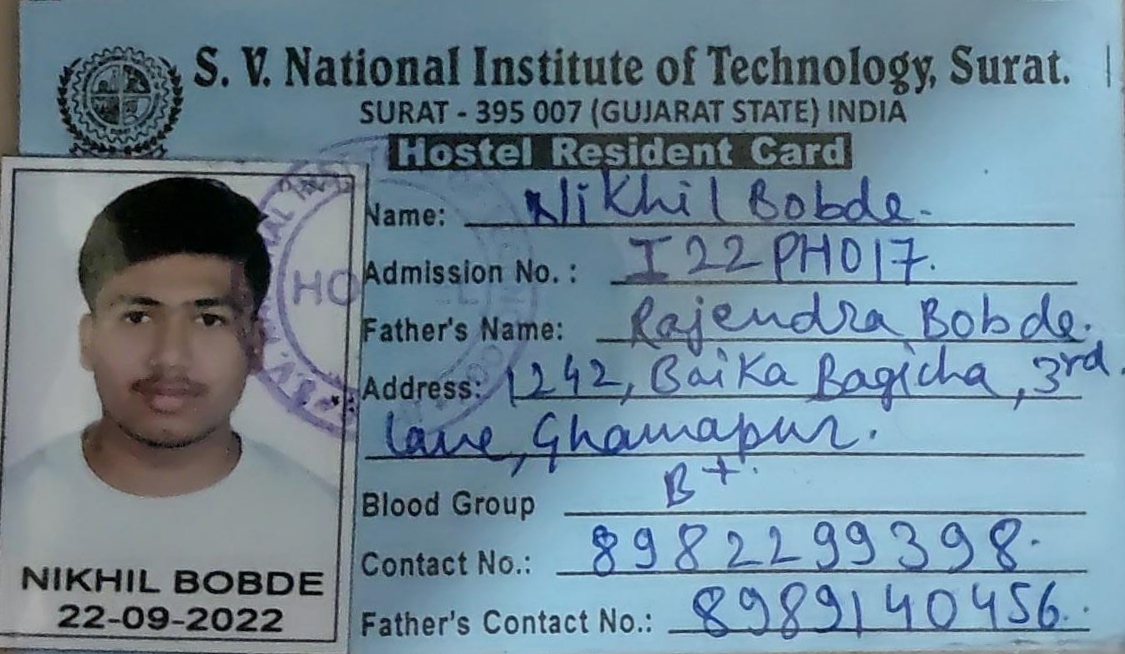 S. V. National Institute of Technology, Surat.
SURAT - 395 007 (GUJARAT STATE) INDIA
Hostel Resident Card
Name: Nikhil Bobde.
Admission No. : I22PH017.
Father's Name: Rajendra Bobde.
Address: 1242, Baika Bagicha, 3rd
lane, Ghamapur.
Blood Group B+.
Contact No.: 8982299398.
Father's Contact No.: 8989140456.
NIKHIL BOBDE
22-09-2022